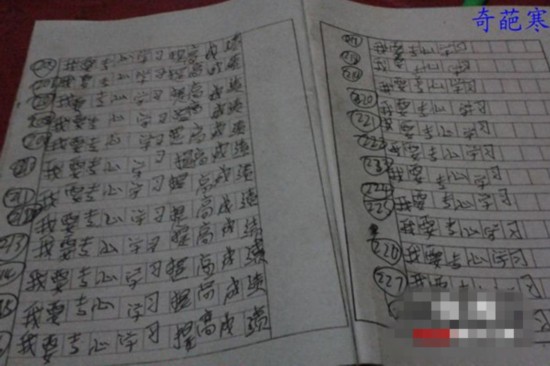 奇葩寒
我要专心学习提高成绩
我要专心学习提高成绩
我要专心学习提高成绩
我要专心学习提高成绩
我要专心学习提高成绩
我要专心学习提高成绩
我要专心学习提高成绩
我要专心学习提高成绩
213 我要专心学习提高成绩
我要专心学习提高成绩
我要专心学习提高成绩
我要专心学习提高成绩
我要专心学习
我要专心学习
我要专心学习
220 我要专心学习
221 我要专心学习
222 我要专心学习
223 我要专心学习
224 我要专心学习
225 我要专心学习
我要专心学习
226 我要专心学习
227 我要专心学习